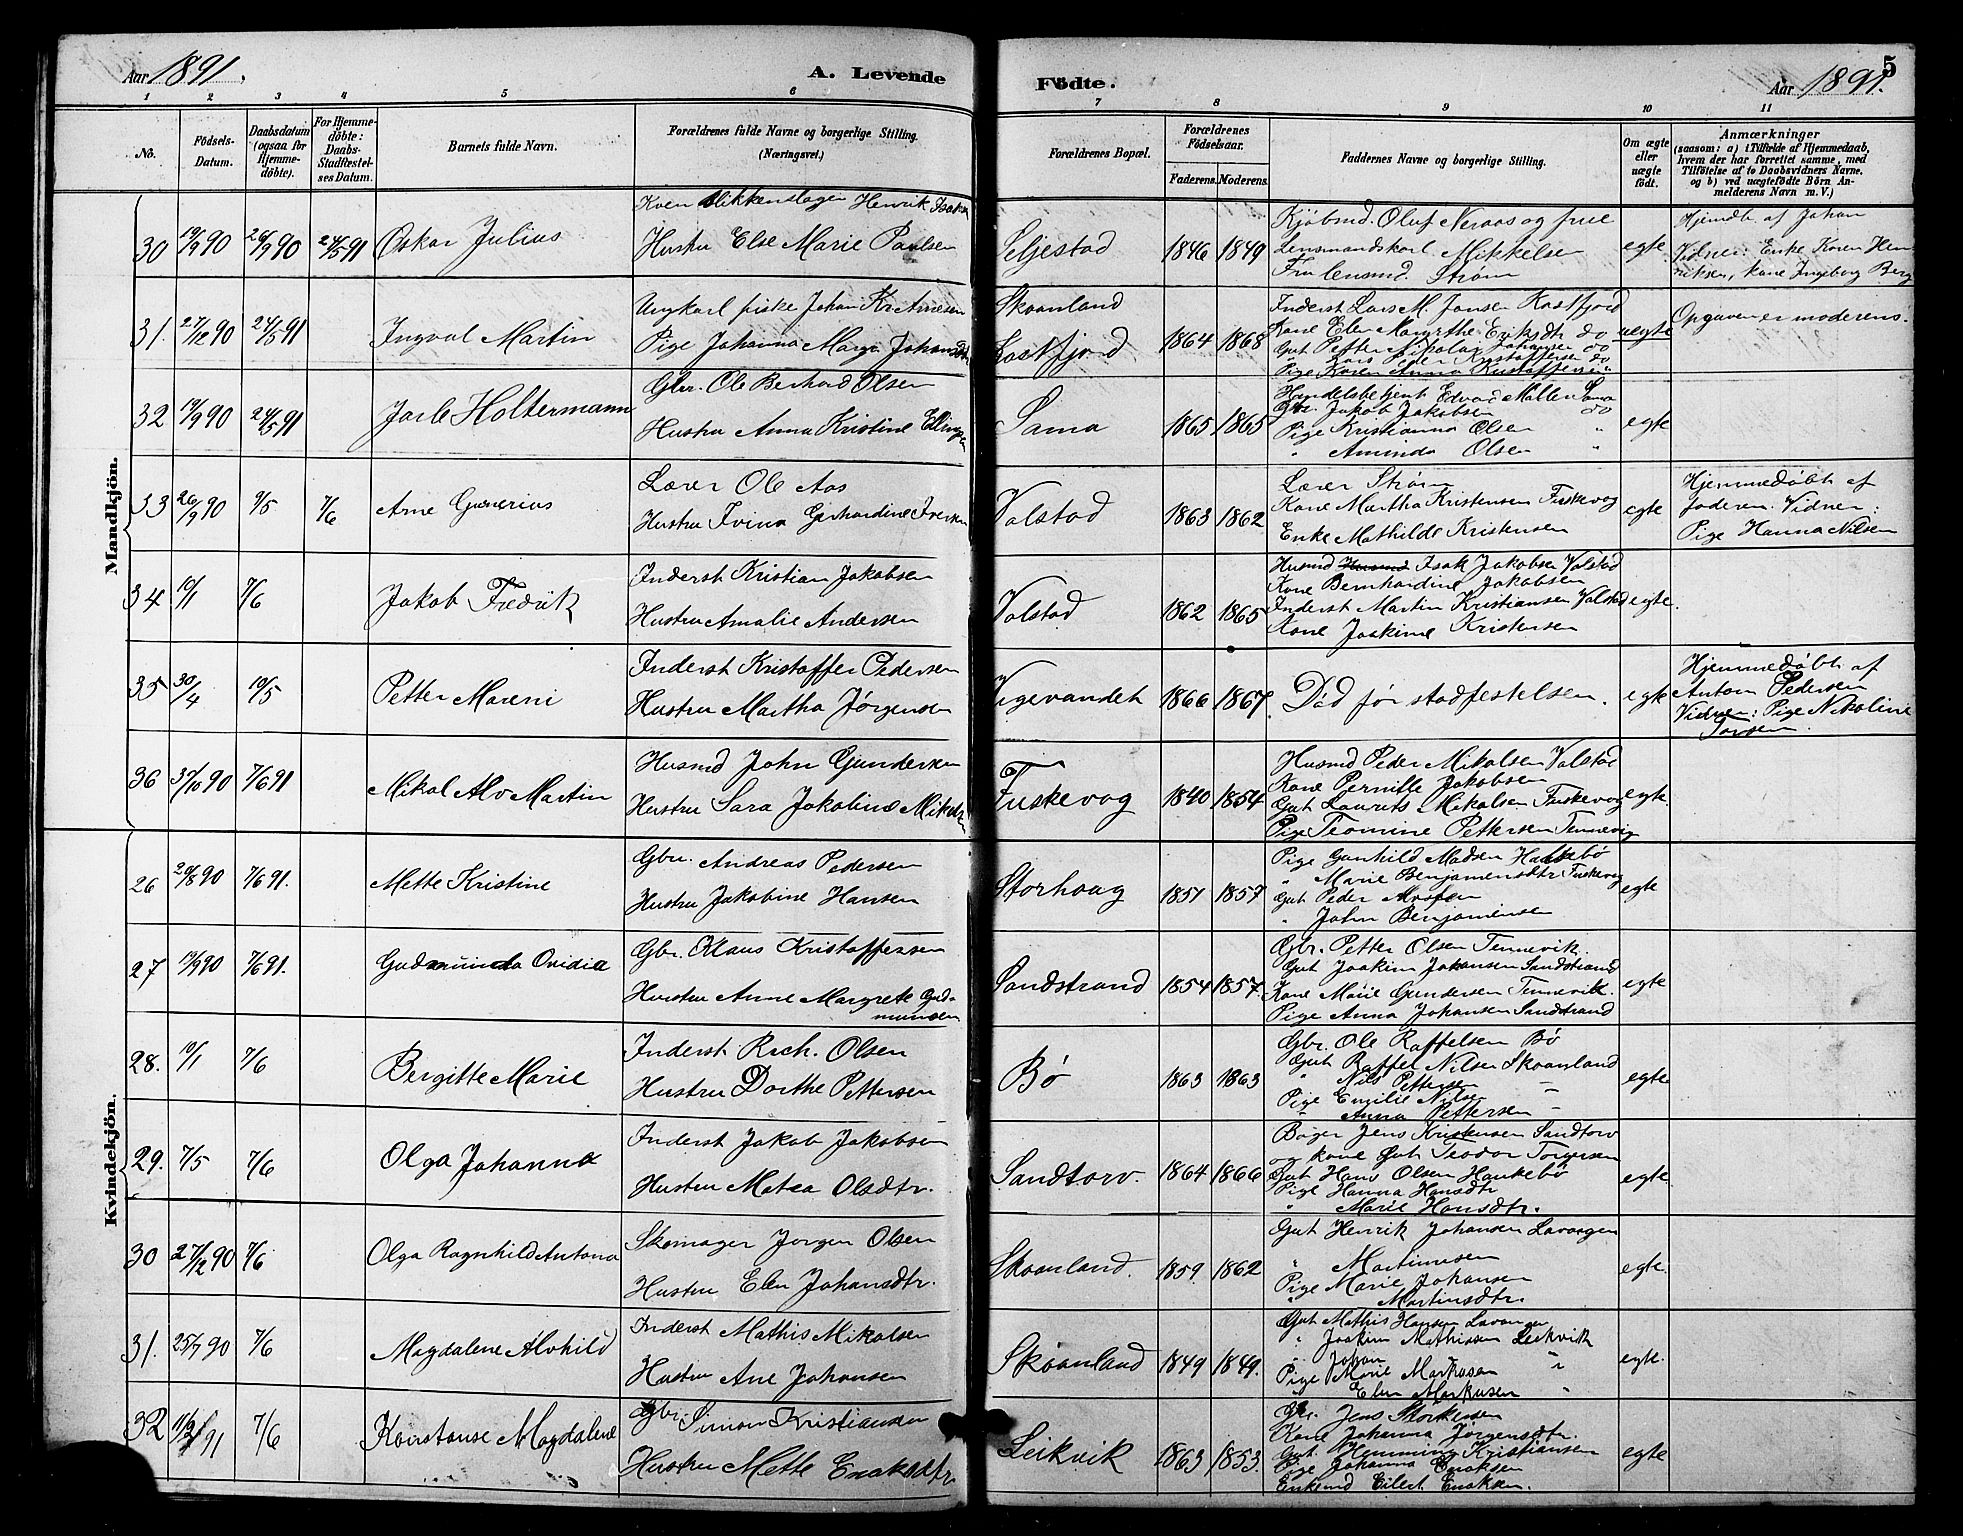 Aar 1891.
A. Levende
Fødte.
Aar 1891.
5
1 2 3 4 5 6 7 8 9 10 11
No.
Fødsels-Datum.
Daabsdatum (ogsaa for Hjemme-døbte).
For Hjemme-døbte: Daabs-Stadfæstel-ses Datum.
Barnets fulde Navn.
Forældrenes fulde Navne og borgerlige Stilling. (Næringsvei.)
Forældrenes Bopæl.
Forældrenes Fødselsaar.
Faderens. Moderens.
Faddernes Navne og borgerlige Stilling.
Om ægte eller uægte født.
Anmærkninger
(saasom: a) i Tilfælde af Hjemmedaab, hvem der har forrettet samme, med Tilføielse af to Daabsvidners Navne, og b) ved uægtefødte Børn An-melderens Navn m. V.)
Mandkjøn.
30 19/9 90 28/9 90 24/5 91 Oskar Julius
Kven Blikkenslager Henrik Isaksen
Hustru Else Marie Paulsen
Seljestad 1846 1849
Kjøbmd. Oluf Neraas og frue
Lensmandskarl Mikkelsen
Fru lensmd. Strøm
egte
Hjemdb. af Johan
Vidner: Enke Karen Hen
riksen, kone Ingeborg Berg
31. 27/12 90 24/5 91 Ingval Martin
Ungkarl fiske Johan Kristinesen
Pige Johanna Marga Johansdtr
Skaanland
Kastfjord 1864 1868
Inderst Lars M. Jansen Kastfjord
Kone Elen Margrethe Eriksdtr do
Gut Petter Nikolai Johansen do
Lars Peder Kristoffersen do
Pige Karen Anna Kristoffersen "
uegte
Opgaven er moderens.
32 19/9 90 24/5 91 Jarle Holtermann
Gbr. Ole Berhard Olsen
Hustru Anna Kristine Ellingsen
Sama 1865 1865
Handelsbetjent Edvard Møller Sama
Gbr. Jakob Jakobsen do
Pige Kristianna Olsen "
" Aminda Olsen "
egte
33 26/9 90 9/5 7/6 Arne Gunerius
Lærer Ole Aas
Hustru Ivina Gerhardine Iversen
Valstad 1863 1862
Lærer Strøm
Kone Martha Kristensen Fuskevog
Enke Mathilde Kristensen
egte
Hjemmedøbt af
faderen. Vidner:
Pige Hanna Nilsen
34 10/1 7/6 Jakob Fredrik
Inderst Kristian Jakobsen
Hustru Amalie Andersen
Valstad 1862 1865
Husmd Isak Jakobsen Valstad
Kone Bernhardine Jakobsen
Inderst Martin Kristiansen Valstad
Kone Joakime Kristensen
egte.
35 30/4 10/5 Petter Mareni
Inderst Kristoffer Pedersen
Hustru Martha Jørgensen
Vigevandet 1866 1867.
Død før stadfestelsen.
egte
Hjemmedøbt af
Anton Pedersen
Vidner: Pige Nikoline
36 31/10 90 7/6 91 Mikal Alv Martin
Husmd John Gundersen
Hustru Sara Jakobine Mikalsen
Fuskevog 1840 1854
Husmd Peder Mikalsen Valstad
Kone Pernille Jakobsen
Gut Laurits Mikalsen Fuskevog
Pige Teomine Pettersen Tennevig
egte.
Kvindekjøn.
26 20/8 90 7/6 91. Mette Kristine
Gbr. Andreas Pedersen
Hustru Jakobine Hansen
Storhaag 1851 1857
Pige Gunhild Madsen Haukebø
" Marie Benjaminsdtr Fuskevog
Gut Peder
" John Benjaminsen
egte
27 17/9 90 7/6 91. Gudmunda Ovidia
Gbr. Klaus Kristoffersen
Hustru Anne Margrete Gud-
mundsen
Sandstrand 1854 1857.
Gbr. Petter Olsen Tennevik.
Gut Joakim Johansen Sandstrand
Kone Marie Gundersen Tennevik
Pige Anna Johansen Sandstrand
egte
28. 10/1 7/6 Bergitte Marie
Inderst Rich. Olsen
Hustru Dorthe Pettersen
Bø 1863 1863
Gbr. Ole Raffelsen Bø
Gut Raffel Nilsen Skaanland
" Nils Pettersen "
Pige Emilie Nilsen
" Anna Pettersen "
egte
29. 7/5 7/6 Olga Johanna
Inderst Jakob Jakobsen
Hustru Matea Olsdtr.
Sandtorv. 1864 1866
Bager Jens Kristensen Sandtorv
og kone Gut Teodor Torgersen
Gut Hans Olsen Haukebø
Pige Hanna Hansdtr
" Marie Hansdtr.
egte.
30 27/12 90 7/6 Olga Ragnhild Antona
Skomager Jørgen Olsen
Hustru Elen Johansdtr.
Skaanland. 1859. 1862
Gut Henrik Johansen Lavangen
" Martinusen
Pige Marie Johansen
" Martinsdtr.
egte.
31. 25/7 90 7/6 Magdalene Alvhild
Inderst Mathis Mikalsen
Hustru Ane Johansen
Skaanland 1849 1849.
Gut Mathis Hansen Lavangen
" Joakim Mathissen Leikvik
" Johan "
Pige Marie Markusen
" Elen Markusen "
egte.
32 11/2 91 7/6 Konstanse Magdalene
Gbr. Simon Kristiansen
Hustru Mette Enoksdtr
Leikvik 1863 1853.
Gbr. Jens Storkersen
Kone Johanna Jørgensdtr.
Gut Hemming Kristiansen
Pige Johanna Enoksen
Enkemd Eilert Enoksen.
egte